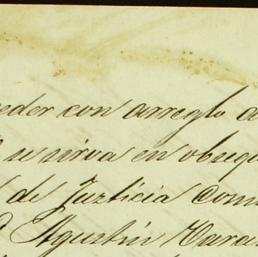 eder con arreglo a
se sirva en obsequ
de Justicia com
D Agustin Nara